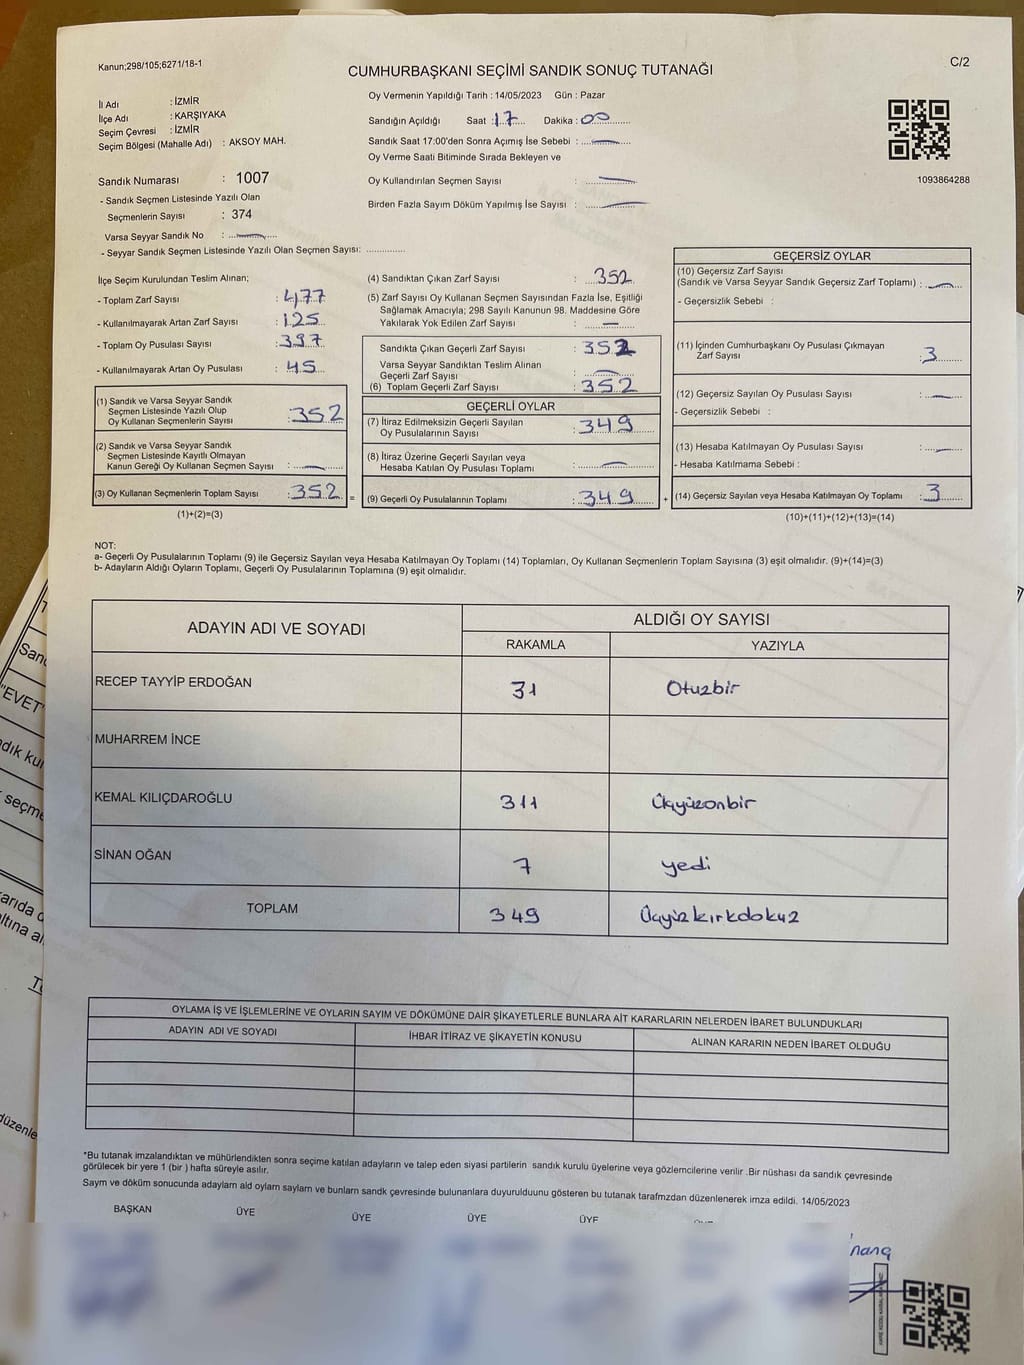 Kanun;298/105;6271/18-1
C/2
CUMHURBAŞKANI SEÇİMİ SANDIK SONUÇ TUTANAĞI
İl Adı : İZMİR
İlçe Adı : KARŞIYAKA
Seçim Çevresi : İZMİR
Seçim Bölgesi (Mahalle Adı) : AKSOY MAH.
Sandık Numarası : 1007
- Sandık Seçmen Listesinde Yazılı Olan
Seçmenlerin Sayısı : 374
Varsa Seyyar Sandık No :
- Seyyar Sandık Seçmen Listesinde Yazılı Olan Seçmen Sayısı:
Oy Vermenin Yapıldığı Tarih : 14/05/2023 Gün : Pazar
Sandığın Açıldığı Saat : 17 Dakika : 00
Sandık Saat 17:00'den Sonra Açımış İse Sebebi :
Oy Verme Saati Bitiminde Sırada Bekleyen ve
Oy Kullandırılan Seçmen Sayısı :
Birden Fazla Sayım Döküm Yapılmış İse Sayısı :
1093864288
İlçe Seçim Kurulundan Teslim Alınan;
- Toplam Zarf Sayısı : 477
- Kullanılmayarak Artan Zarf Sayısı : 125
- Toplam Oy Pusulası Sayısı : 397
- Kullanılmayarak Artan Oy Pusulası : 45
(1) Sandık ve Varsa Seyyar Sandık
Seçmen Listesinde Yazılı Olup
Oy Kullanan Seçmenlerin Sayısı : 352
(2) Sandık ve Varsa Seyyar Sandık
Seçmen Listesinde Kayıtlı Olmayan
Kanun Gereği Oy Kullanan Seçmen Sayısı :
(3) Oy Kullanan Seçmenlerin Toplam Sayısı : 352 =
(1)+(2)=(3)
(4) Sandıktan Çıkan Zarf Sayısı : 352
(5) Zarf Sayısı Oy Kullanan Seçmen Sayısından Fazla İse, Eşitliği
Sağlamak Amacıyla; 298 Sayılı Kanunun 98. Maddesine Göre
Yakılarak Yok Edilen Zarf Sayısı :
Sandıkta Çıkan Geçerli Zarf Sayısı : 352
Varsa Seyyar Sandıktan Teslim Alınan
Geçerli Zarf Sayısı :
(6) Toplam Geçerli Zarf Sayısı : 352
GEÇERLİ OYLAR
(7) İtiraz Edilmeksizin Geçerli Sayılan
Oy Pusulalarının Sayısı : 349
(8) İtiraz Üzerine Geçerli Sayılan veya
Hesaba Katılan Oy Pusulası Toplamı :
(9) Geçerli Oy Pusulalarının Toplamı : 349 +
GEÇERSİZ OYLAR
(10) Geçersiz Zarf Sayısı
(Sandık ve Varsa Seyyar Sandık Geçersiz Zarf Toplamı) :
- Geçersizlik Sebebi :
(11) İçinden Cumhurbaşkanı Oy Pusulası Çıkmayan
Zarf Sayısı : 3
(12) Geçersiz Sayılan Oy Pusulası Sayısı :
- Geçersizlik Sebebi :
(13) Hesaba Katılmayan Oy Pusulası Sayısı :
- Hesaba Katılmama Sebebi :
(14) Geçersiz Sayılan veya Hesaba Katılmayan Oy Toplamı : 3
(10)+(11)+(12)+(13)=(14)
NOT:
a- Geçerli Oy Pusulalarının Toplamı (9) ile Geçersiz Sayılan veya Hesaba Katılmayan Oy Toplamı (14) Toplamları, Oy Kullanan Seçmenlerin Toplam Sayısına (3) eşit olmalıdır. (9)+(14)=(3)
b- Adayların Aldığı Oyların Toplamı, Geçerli Oy Pusulalarının Toplamına (9) eşit olmalıdır.
ADAYIN ADI VE SOYADI ALDIĞI OY SAYISI
RAKAMLA YAZIYLA
RECEP TAYYİP ERDOĞAN 31 Otuzbir
MUHARREM İNCE
KEMAL KILIÇDAROĞLU 311 Üçyüzonbir
SİNAN OĞAN 7 yedi
TOPLAM 349 Üçyüzkırkdokuz
OYLAMA İŞ VE İŞLEMLERİNE VE OYLARIN SAYIM VE DÖKÜMÜNE DAİR ŞİKAYETLERLE BUNLARA AİT KARARLARIN NELERDEN İBARET BULUNDUKLARI
ADAYIN ADI VE SOYADI İHBAR İTİRAZ VE ŞİKAYETİN KONUSU ALINAN KARARIN NEDEN İBARET OLDUĞU
*Bu tutanak imzalandıktan ve mühürlendikten sonra seçime katılan adayların ve talep eden siyasi partilerin sandık kurulu üyelerine veya gözlemcilerine verilir .Bir nüshası da sandık çevresinde
görülecek bir yere 1 (bir ) hafta süreyle asılır.
Saym ve döküm sonucunda adaylarn ald oylarn saylarn ve bunlarn sandk çevresinde bulunanlara duyurulduunu gösteren bu tutanak tarafmzdan düzenlenerek imza edildi. 14/05/2023
BAŞKAN ÜYE ÜYE ÜYE ÜYE